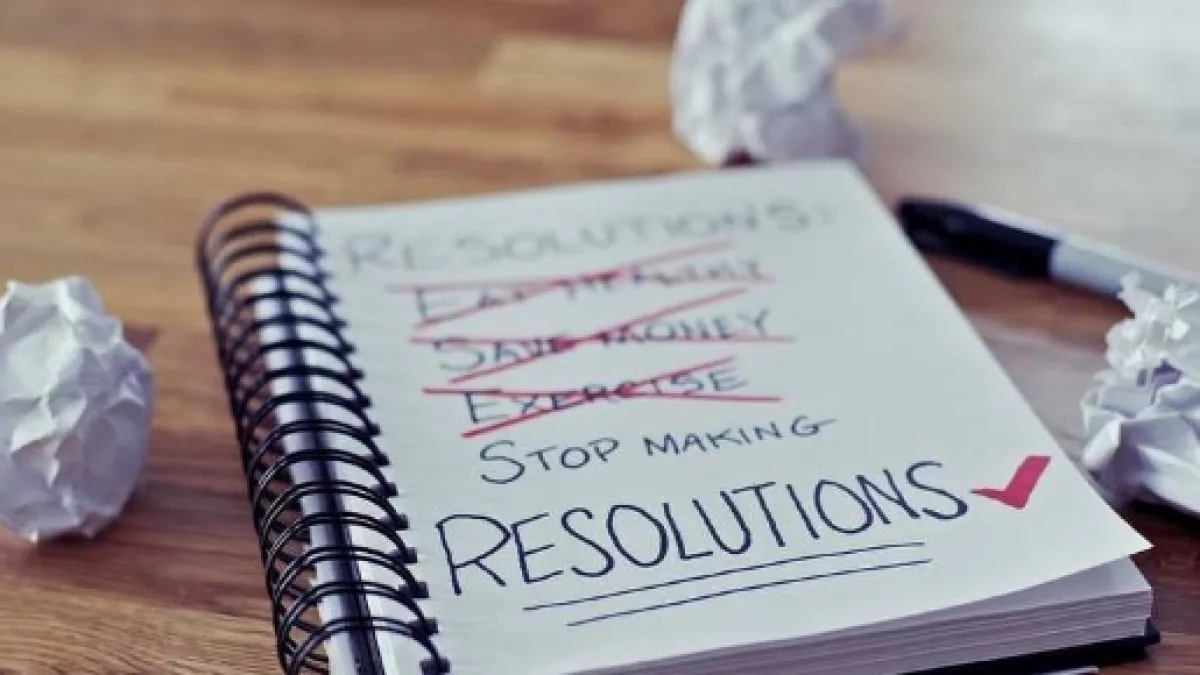 RESOLUTIONS:
EAT HEALTHY
SAVE MONEY
EXERCISE
STOP MAKING
RESOLUTIONS